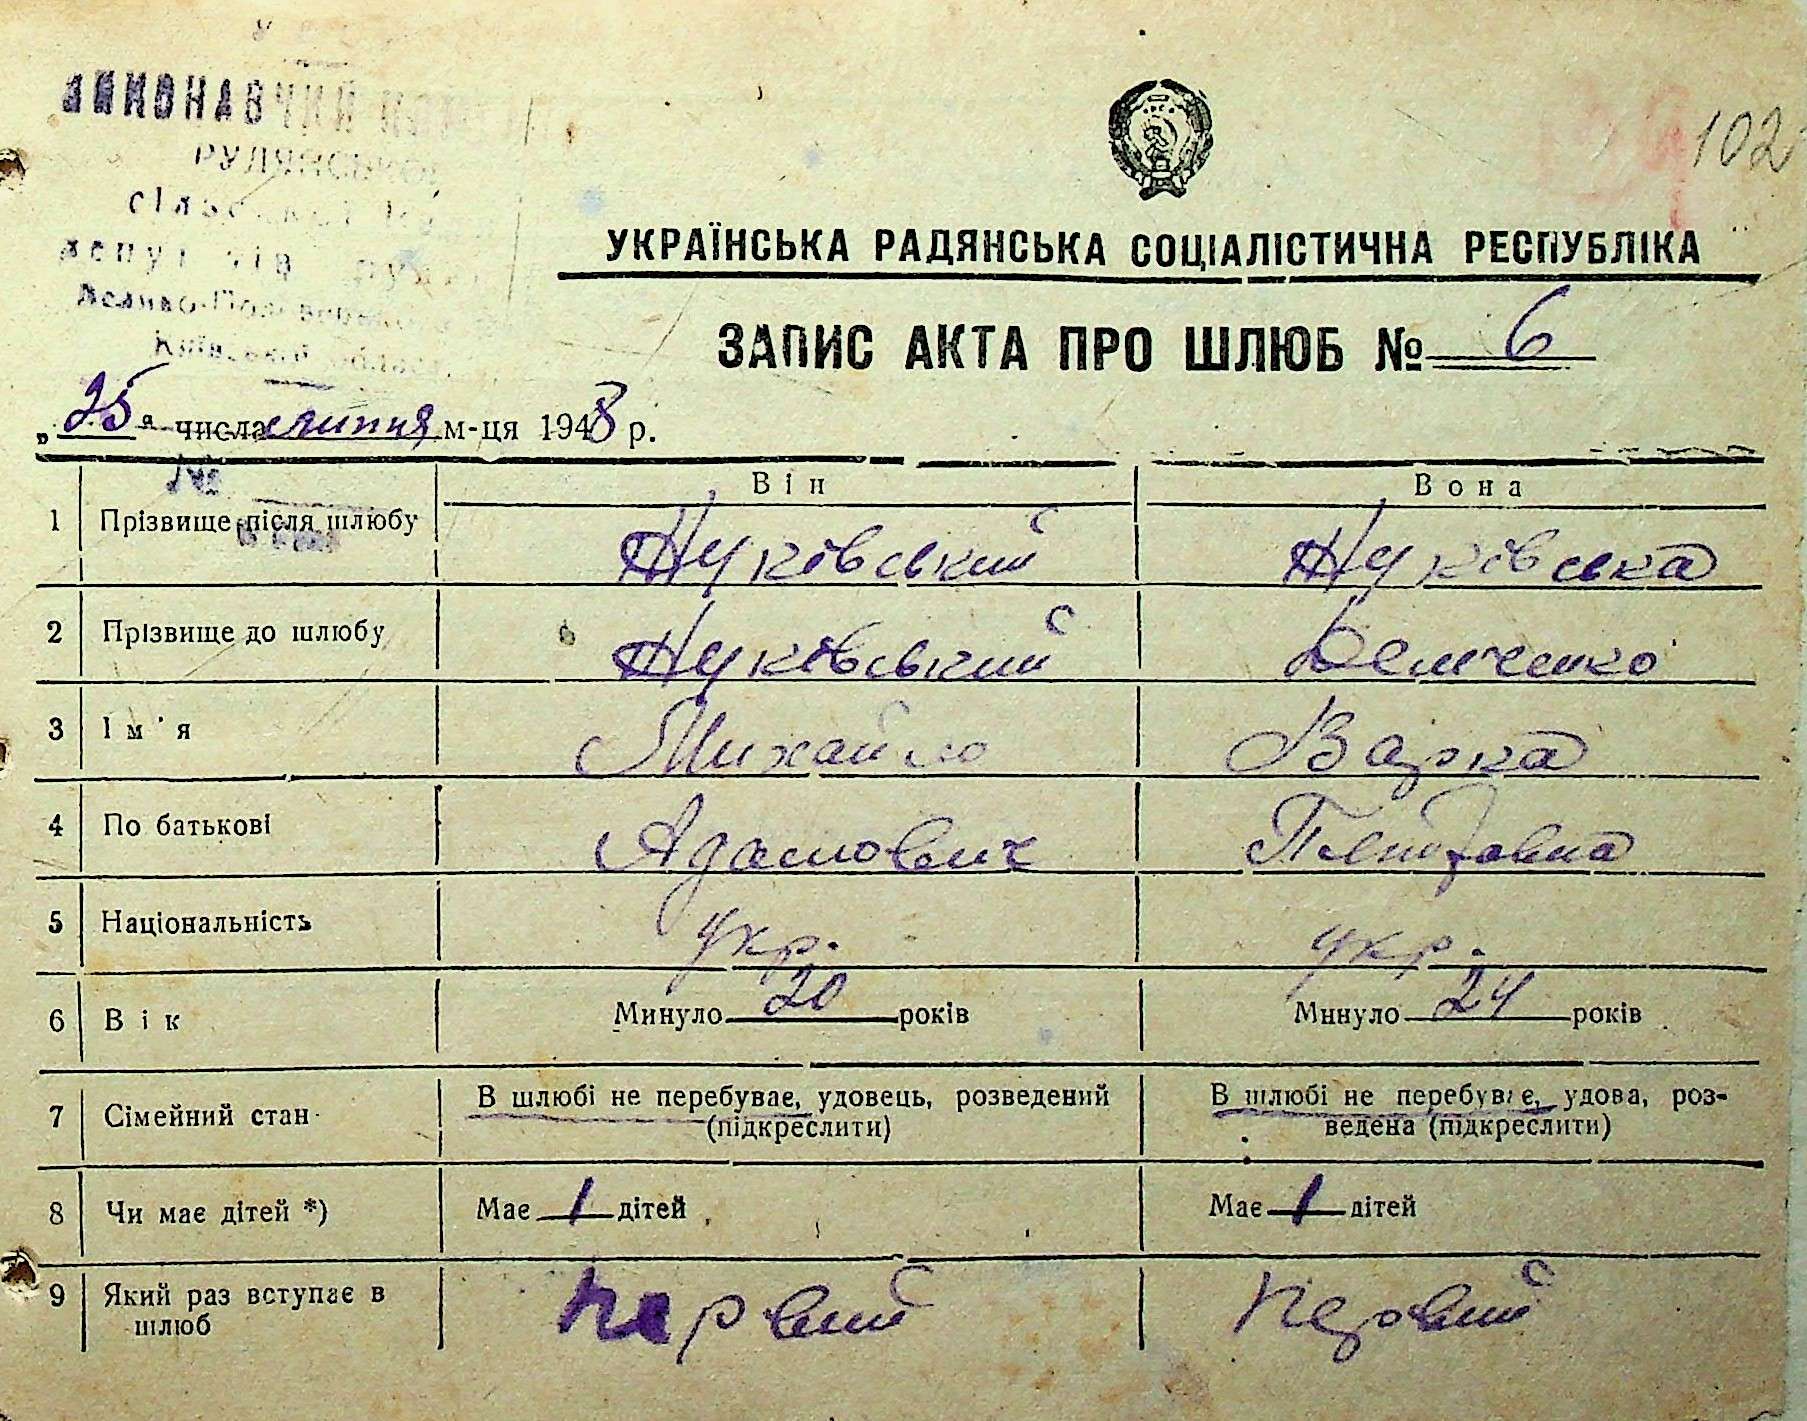 ВИКОНАВЧИЙ
РУДЯНСЬКОЇ
102
УКРАЇНСЬКА РАДЯНСЬКА СОЦІАЛІСТИЧНА РЕСПУБЛІКА
ЗАПИС АКТА ПРО ШЛЮБ № 6
„25“ числа липня м-ця 1948 р.
№
Він Вона
1 Прізвище після шлюбу
2 Прізвище до шлюбу Демченко
3 Ім'я Михайло Варка
4 По батькові Адамович
5 Національність укр. укр.
6 Вік Минуло 20 років Минуло 24 років
7 Сімейний стан В шлюбі не перебуває, удовець, розведений (підкреслити) В шлюбі не перебуває, удова, роз-
ведена (підкреслити)
8 Чи має дітей *) Має 1 дітей Має 1 дітей
9 Який раз вступає в первий первий
шлюб